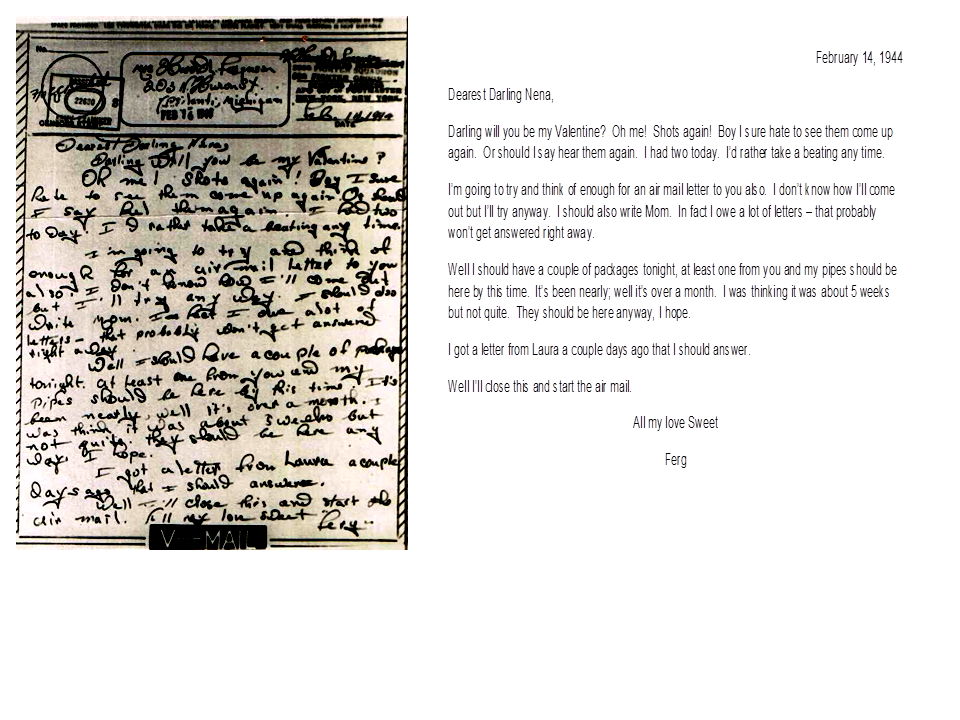 No.
22630
CENSOR'S STAMP
Mrs Howard Ferguson
203 N. Huron St.
Ypsilanti, Michigan
FEB 16
NEW YORK, NEW YORK.
DATE
Dearest Darling Nena
Darling will you be my Valentine?
Oh me! Shots again! Boy I sure
hate to see them come up again Or should
I say hear them again. I had two
to day. I'd rather take a beating any time.
I'm going to try and think of
enough for an air mail letter to you
also. I don't know how I'll come out
but I'll try any way. I should also
write Mom. In fact I owe alot of
letters - that probably won't get answered
right away.
Well I should have a couple of packages
tonight. at least one from you and my
pipes should be here by this time. It's
been nearly, well it's over a month. I
was think it was about 5 weeks but
not quite. they should be here any
way. I hope.
I got a letter from Laura a couple
days ago that I should answer.
Well I'll close this and start the
air mail. All my love Sweet Ferg
V···—MAIL
February 14, 1944
Dearest Darling Nena,
Darling will you be my Valentine? Oh me! Shots again! Boy I sure hate to see them come up
again. Or should I say hear them again. I had two today. I'd rather take a beating any time.
I'm going to try and think of enough for an air mail letter to you also. I don't know how I'll come
out but I'll try anyway. I should also write Mom. In fact I owe a lot of letters – that probably
won't get answered right away.
Well I should have a couple of packages tonight, at least one from you and my pipes should be
here by this time. It's been nearly; well it's over a month. I was thinking it was about 5 weeks
but not quite. They should be here anyway, I hope.
I got a letter from Laura a couple days ago that I should answer.
Well I'll close this and start the air mail.
All my love Sweet
Ferg